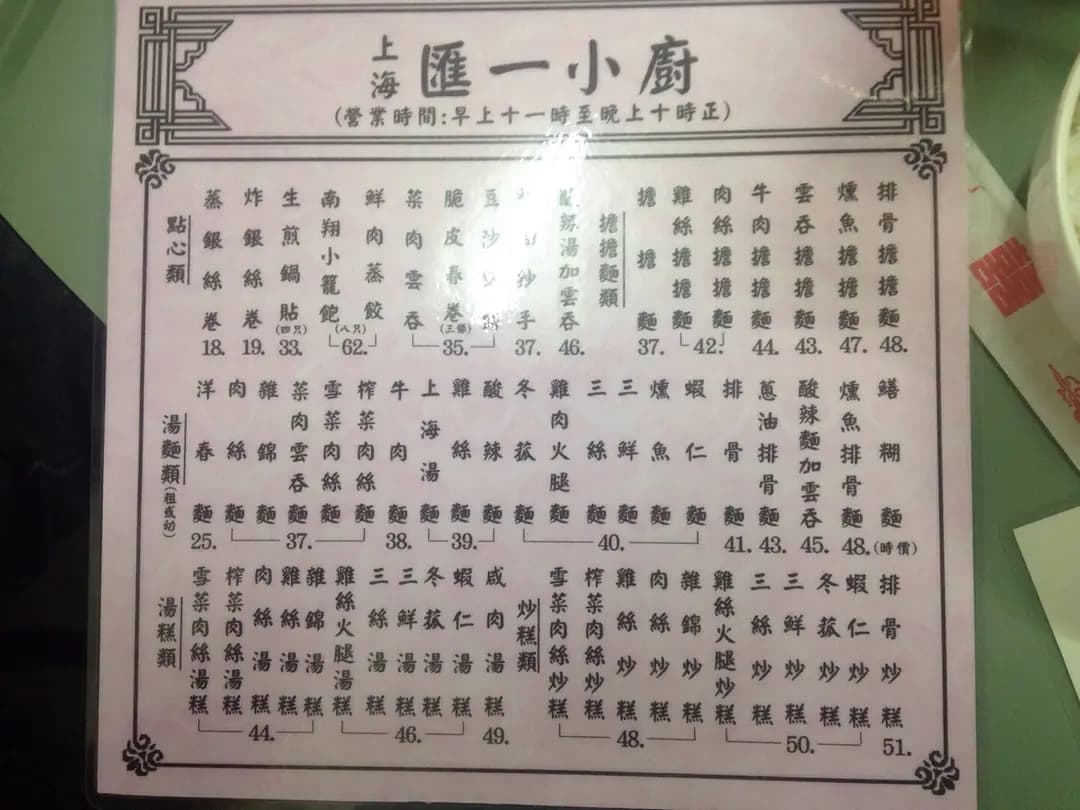 上海 匯一小廚
(營業時間:早上十一時至晚上十時正)
點心類
蒸銀絲卷 18.
炸銀絲卷 19.
生煎鍋貼(四只) 33.
南翔小籠飽
鮮肉蒸餃
(八只) 62.
菜肉雲吞
脆皮春卷(三條)
豆沙
35.
手 37.
辣湯加雲吞 46.
擔擔麵類
擔擔麵 37.
雞絲擔擔麵
肉絲擔擔麵
42.
牛肉擔擔麵 44.
雲吞擔擔麵 43.
燻魚擔擔麵 47.
排骨擔擔麵 48.
湯麵類(粗或幼)
洋春麵 25.
肉絲麵
雜錦麵
菜肉雲吞麵
雪菜肉絲麵
榨菜肉絲麵
37.
牛肉麵 38.
上海湯麵
雞絲麵
酸辣麵
39.
冬菰麵
雞肉火腿麵
三絲麵
三鮮麵
燻魚麵
蝦仁麵
40.
排骨麵 41.
蔥油排骨麵 43.
酸辣麵加雲吞 45.
燻魚排骨麵 48.
鱔糊麵 (時價)
湯糕類
雪菜肉絲湯糕
榨菜肉絲湯糕
肉絲湯糕
雞絲湯糕
雜錦湯糕
44.
雞絲火腿湯糕
三絲湯糕
三鮮湯糕
冬菰湯糕
蝦仁湯糕
46.
咸肉湯糕 49.
炒糕類
雪菜肉絲炒糕
榨菜肉絲炒糕
雞絲炒糕
肉絲炒糕
雜錦炒糕
48.
雞絲火腿炒糕
三絲炒糕
三鮮炒糕
冬菰炒糕
蝦仁炒糕
50.
排骨炒糕 51.